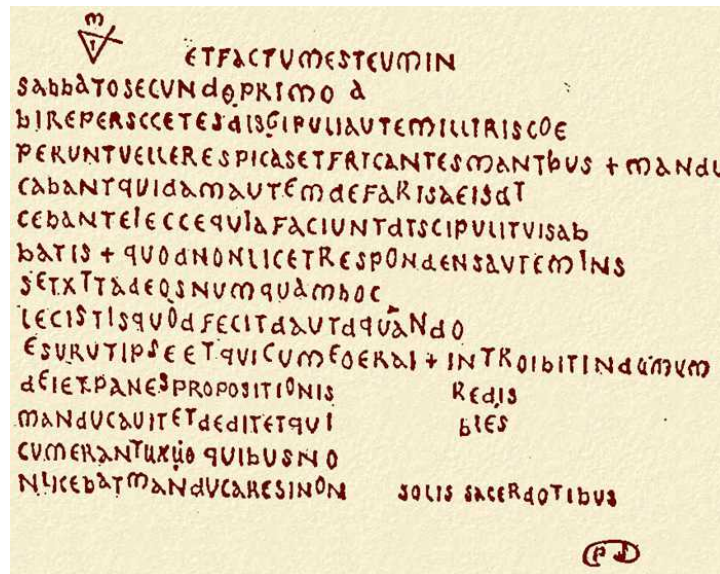 ETFACTUMESTEUMIN
SABBATOSECUNDOPRIMO A
BIREPERSCCETESDISGIPULIAUTEMILLIRISCOE
PERUNTUELLERESPICASETFRICANTESMANIBUS + MANDU
CABANTQUIDAMAUTEMDEFARISAEISDI
CEBANTEIECCEQUIAFACIUNTDISCIPULITUISAB
BATIS + QUODNONLICETRESPONDENSAUTEMINS
SETXITADEOSNUMQUAMHOC
LECISTISQUODFECITDAUIDQUANDO
ESURUTIPSEETQUICUMEOERAI + INTROIBITINDUMUM
DEIETPANESPROPOSITIONIS REDIS
MANDUCAUITETDEDITETQUI BLES
CUMERANTUXUO QUIBUSNO
NLICEBATMANDUCARESINON SOLIS SACERDOTIBUS